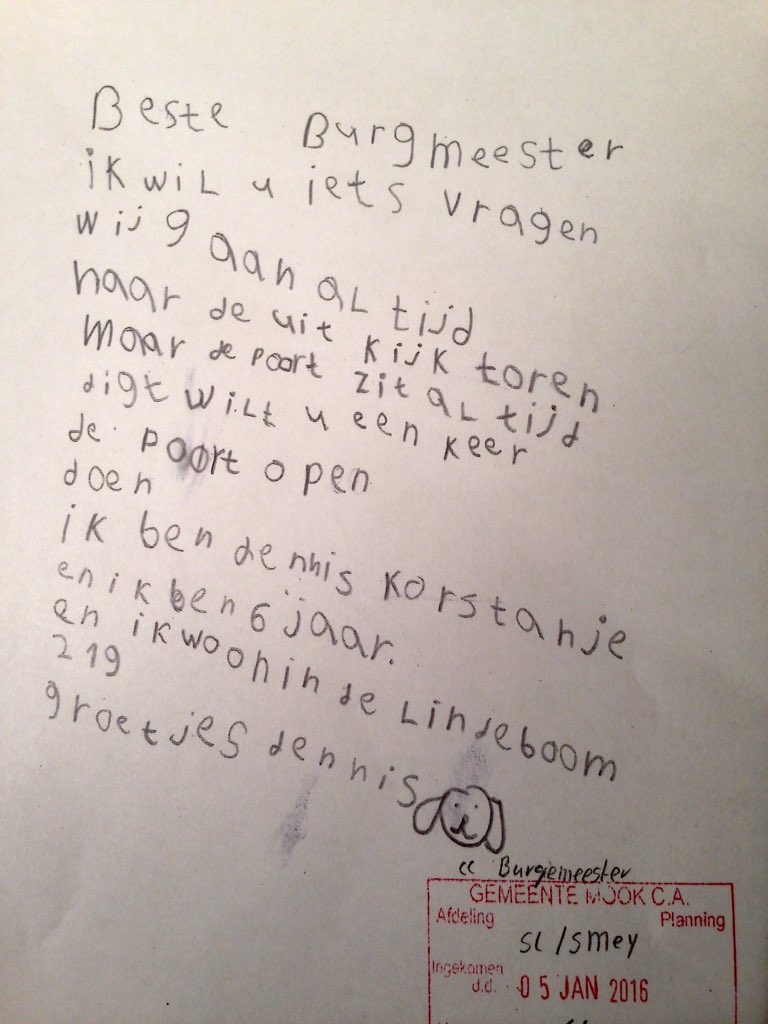 Beste Burgmeester
ik wil u iets vragen
wij gaan al tijd
naar de uit kijk toren
maar de poort zit al tijd
digt wilt u een keer
de poort open
doen
ik ben dennis Korstanje
en ik ben 6 jaar.
en ik woon in de Lindeboom
219
groetjes dennis
cc Burgemeester
GEMEENTE MOOK C.A.
Afdeling Planning
SL/SMey
Ingekomen
d.d. 05 JAN 2016